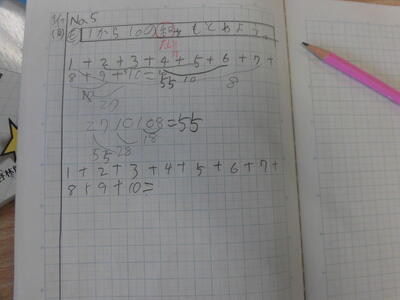 No.5
め 1から10の和をもとめよう。
1 + 2 + 3 + 4 + 5 + 6 + 7 +
8 + 9 + 10 = 55
10 8
27
27 10 10 8 = 55
18
55 28
1 + 2 + 3 + 4 + 5 + 6 + 7 +
8 + 9 + 10 =